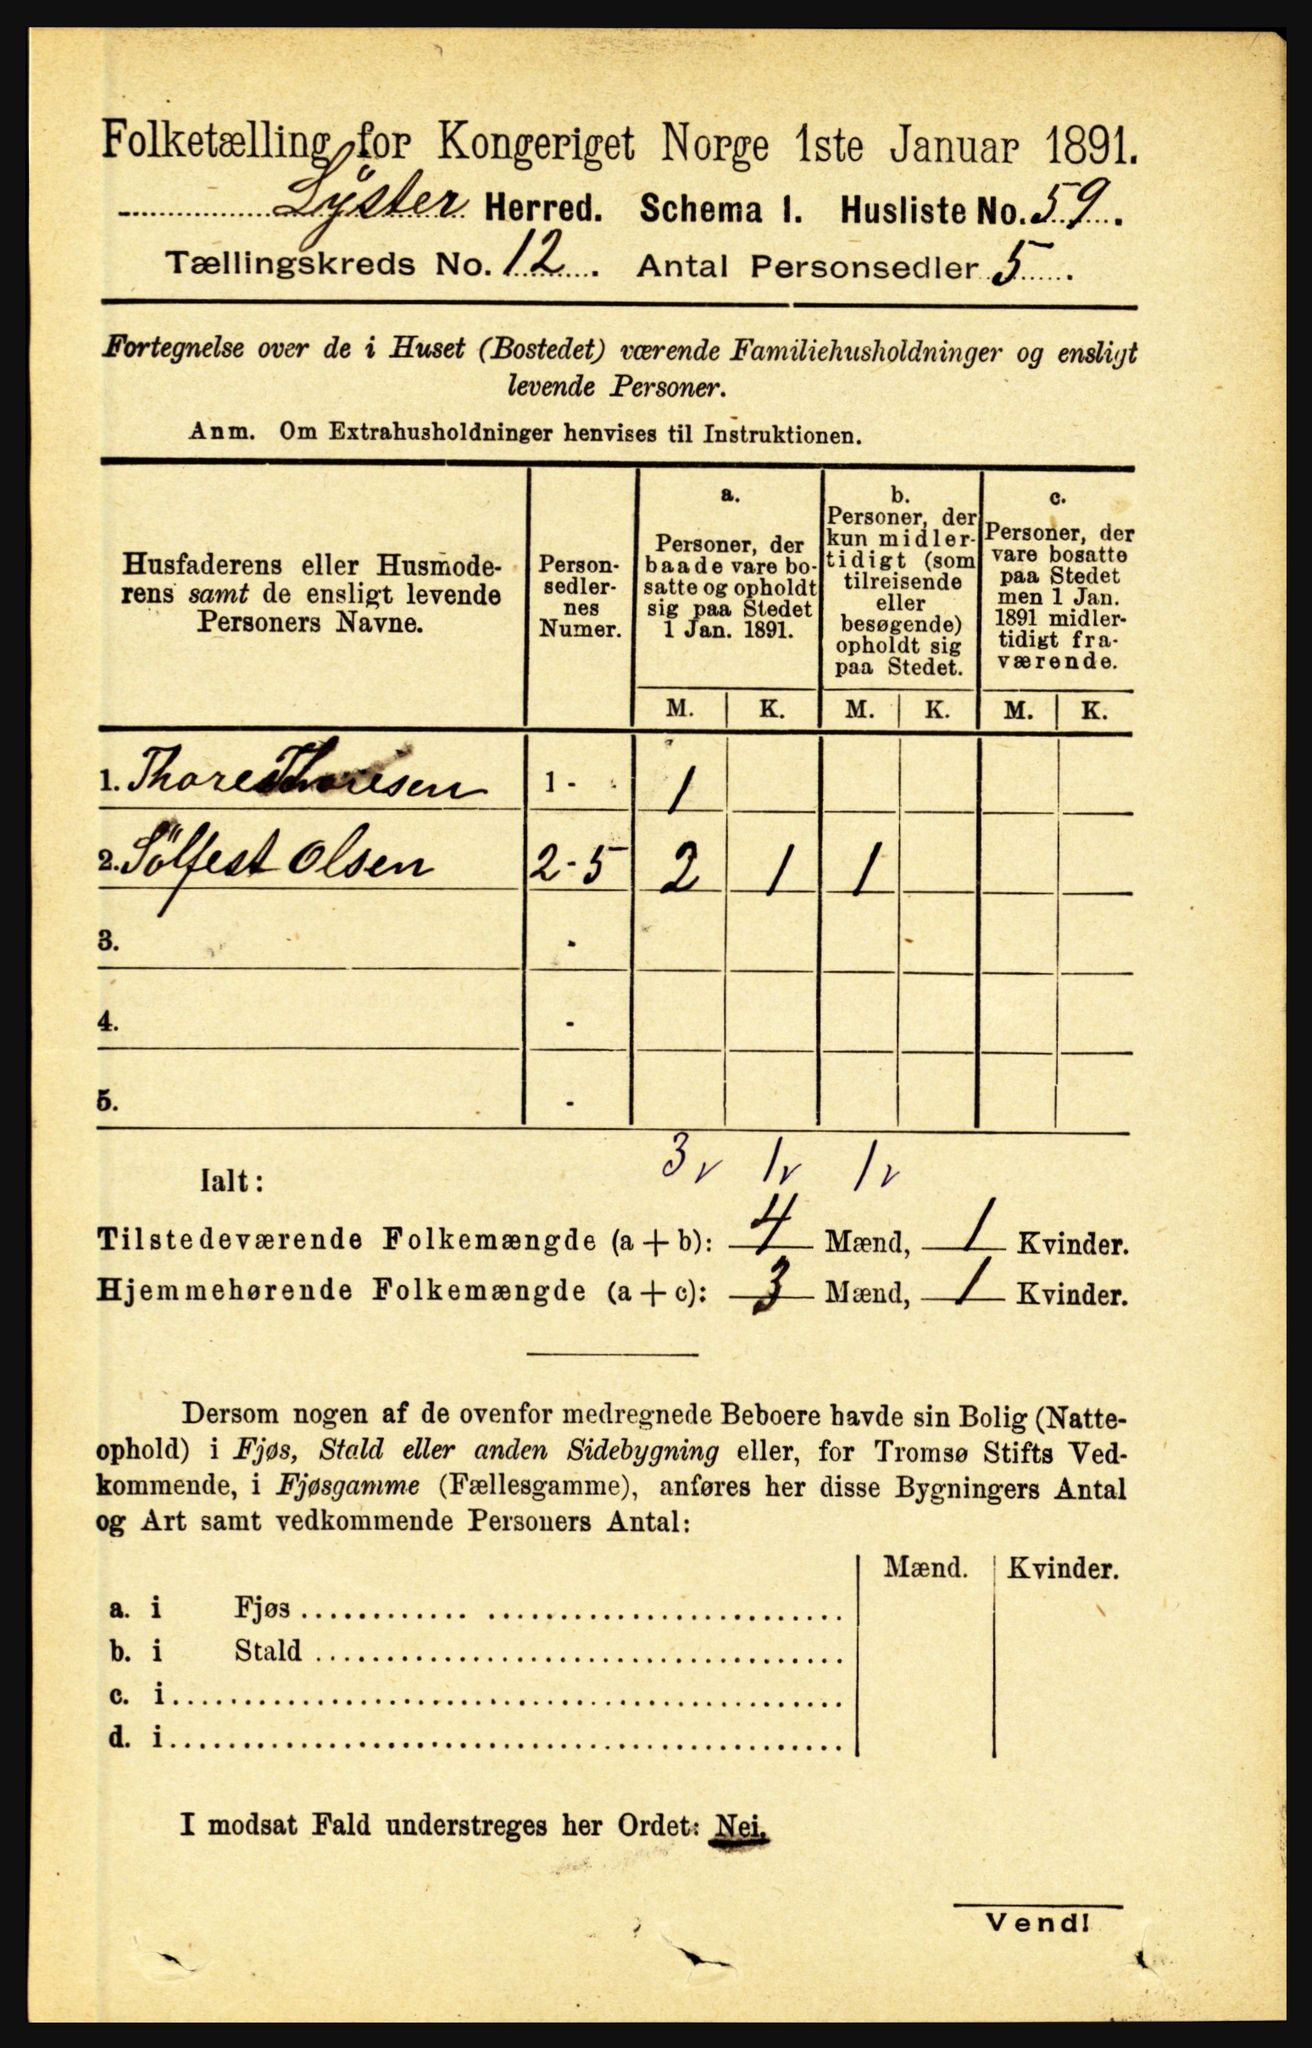 Folketælling for Kongeriget Norge 1ste Januar 1891.
Lyster Herred. Schema I. Husliste No. 59.
Tællingskreds No. 12. Antal Personsedler 5.
Fortegnelse over de i Huset (Bostedet) værende Familiehusholdninger og ensligt
levende Personer.
Anm. Om Extrahusholdninger henvises til Instruktionen.
Husfaderens eller Husmode-
rens samt de ensligt levende
Personers Navne.
Person-
sedler-
nes
Numer.
a.
Personer, der
baade vare bo-
satte og opholdt
sig paa Stedet
1 Jan. 1891.
b.
Personer, der
kun midler-
tidigt (som
tilreisende
eller
besøgende)
opholdt sig
paa Stedet.
c.
Personer, der
vare bosatte
paa Stedet
men 1 Jan.
1891 midler-
tidigt fra-
værende.
M. K. M. K. M. K.
1. Thores Thoresen 1 - 1
2. Sölfest Olsen 2-5 2 1 1
3. -
4. -
5. -
Ialt: 3 v 1 v 1 v
Tilstedeværende Folkemængde (a + b): 4 Mænd, 1 Kvinder.
Hjemmehørende Folkemængde (a + c): 3 Mænd, 1 Kvinder.
Dersom nogen af de ovenfor medregnede Beboere havde sin Bolig (Natte-
ophold) i Fjøs, Stald eller anden Sidebygning eller, for Tromsø Stifts Ved-
kommende, i Fjøsgamme (Fællesgamme), anføres her disse Bygningers Antal
og Art samt vedkommende Personers Antal:
Mænd. Kvinder.
a. i Fjøs
b. i Stald
c. i
d. i
I modsat Fald understreges her Ordet: Nei.
Vend!